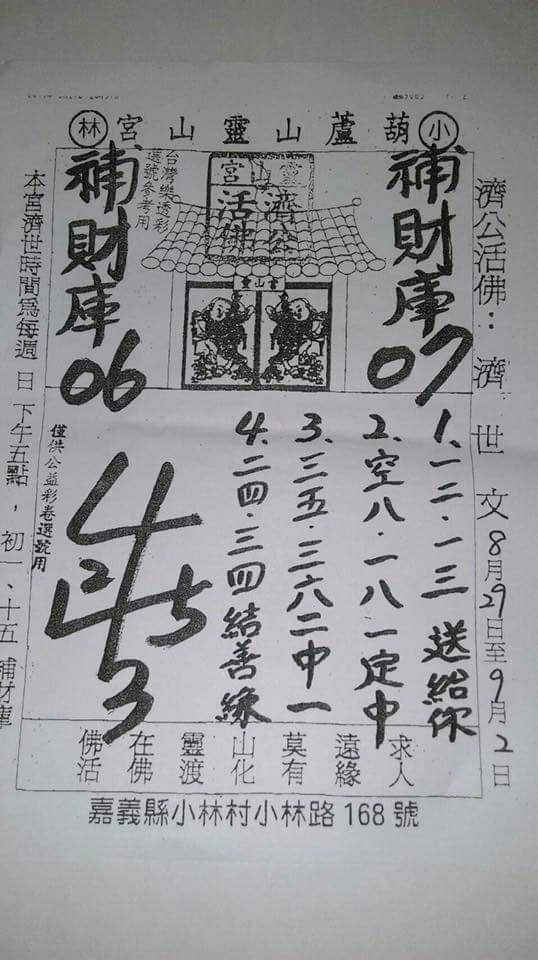 小 葫蘆山靈山宮 林
濟公活佛：濟世文 8月29日至9月2日
補財庫07
靈山宮
濟公
活佛
台灣樂透彩
選號參考用
靈山宮
補財庫06
1、一二·一三 送給你
2、空八·一八一定中
3、三五·三六二中一
4、二四·三四結善緣
4
2 5
3
僅供公益彩卷選號用
本宮濟世時間為每週日下午五點，初一、十五補財庫
求人
遠緣
莫有
山化
靈渡
在佛
佛活
嘉義縣小林村小林路168號